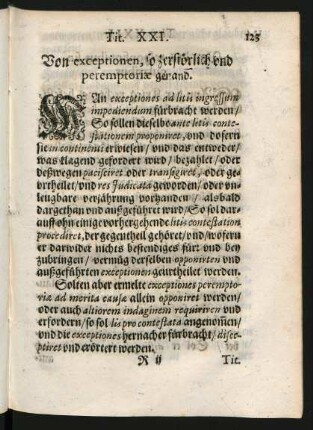 Tit. XXI. 123
Von exceptionen, so zerstörlich vnd
peremptoriæ genand.
WAn exceptiones ad litis ingressum
impediendum fürbracht werden /
So sollen dieselbe ante litis conte-
stationem proponiret, vnd dofern
sie in continenti erwiesen / vnd das entweder /
was klagend gefordert wird / bezahlet / oder
deßwegen pacisciret oder transigiret, oder ge-
vrtheilet / vnd res Judicata geworden / oder vn-
leugbare verjährung vorhanden / alsbald
dargethan vnd außgeführet wird / So sol dar-
auff ohn einige vorhergehende litis contestation
procedirt, der gegentheil gehöret / vnd / wofern
er darwider nichts bestendiges für vnd bey
zubringen / vermüg derselben opponirten vnd
außgeführten exceptionen geurtheilet werden.
Solten aber ermelte exceptiones perempto-
riæ ad merita causæ allein opponiret werden /
oder auch altiorem indaginem requiriren vnd
erfordern / so sol lis pro contestata angenom̃en /
vnd die exceptiones hernacher fürbracht / disce-
ptiret vnd erörtert werden.
R ij Tit.